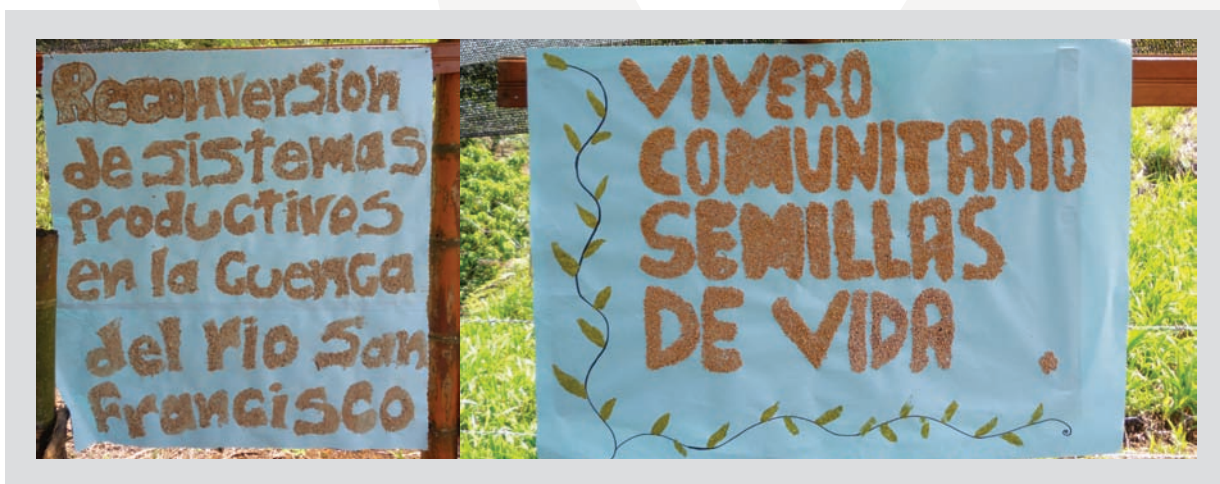 Reconversion
de sistemas
Productivos
en la Cuenca
del rio San
Francisco
VIVERO
COMUNITARIO
SEMILLAS
DE VIDA.